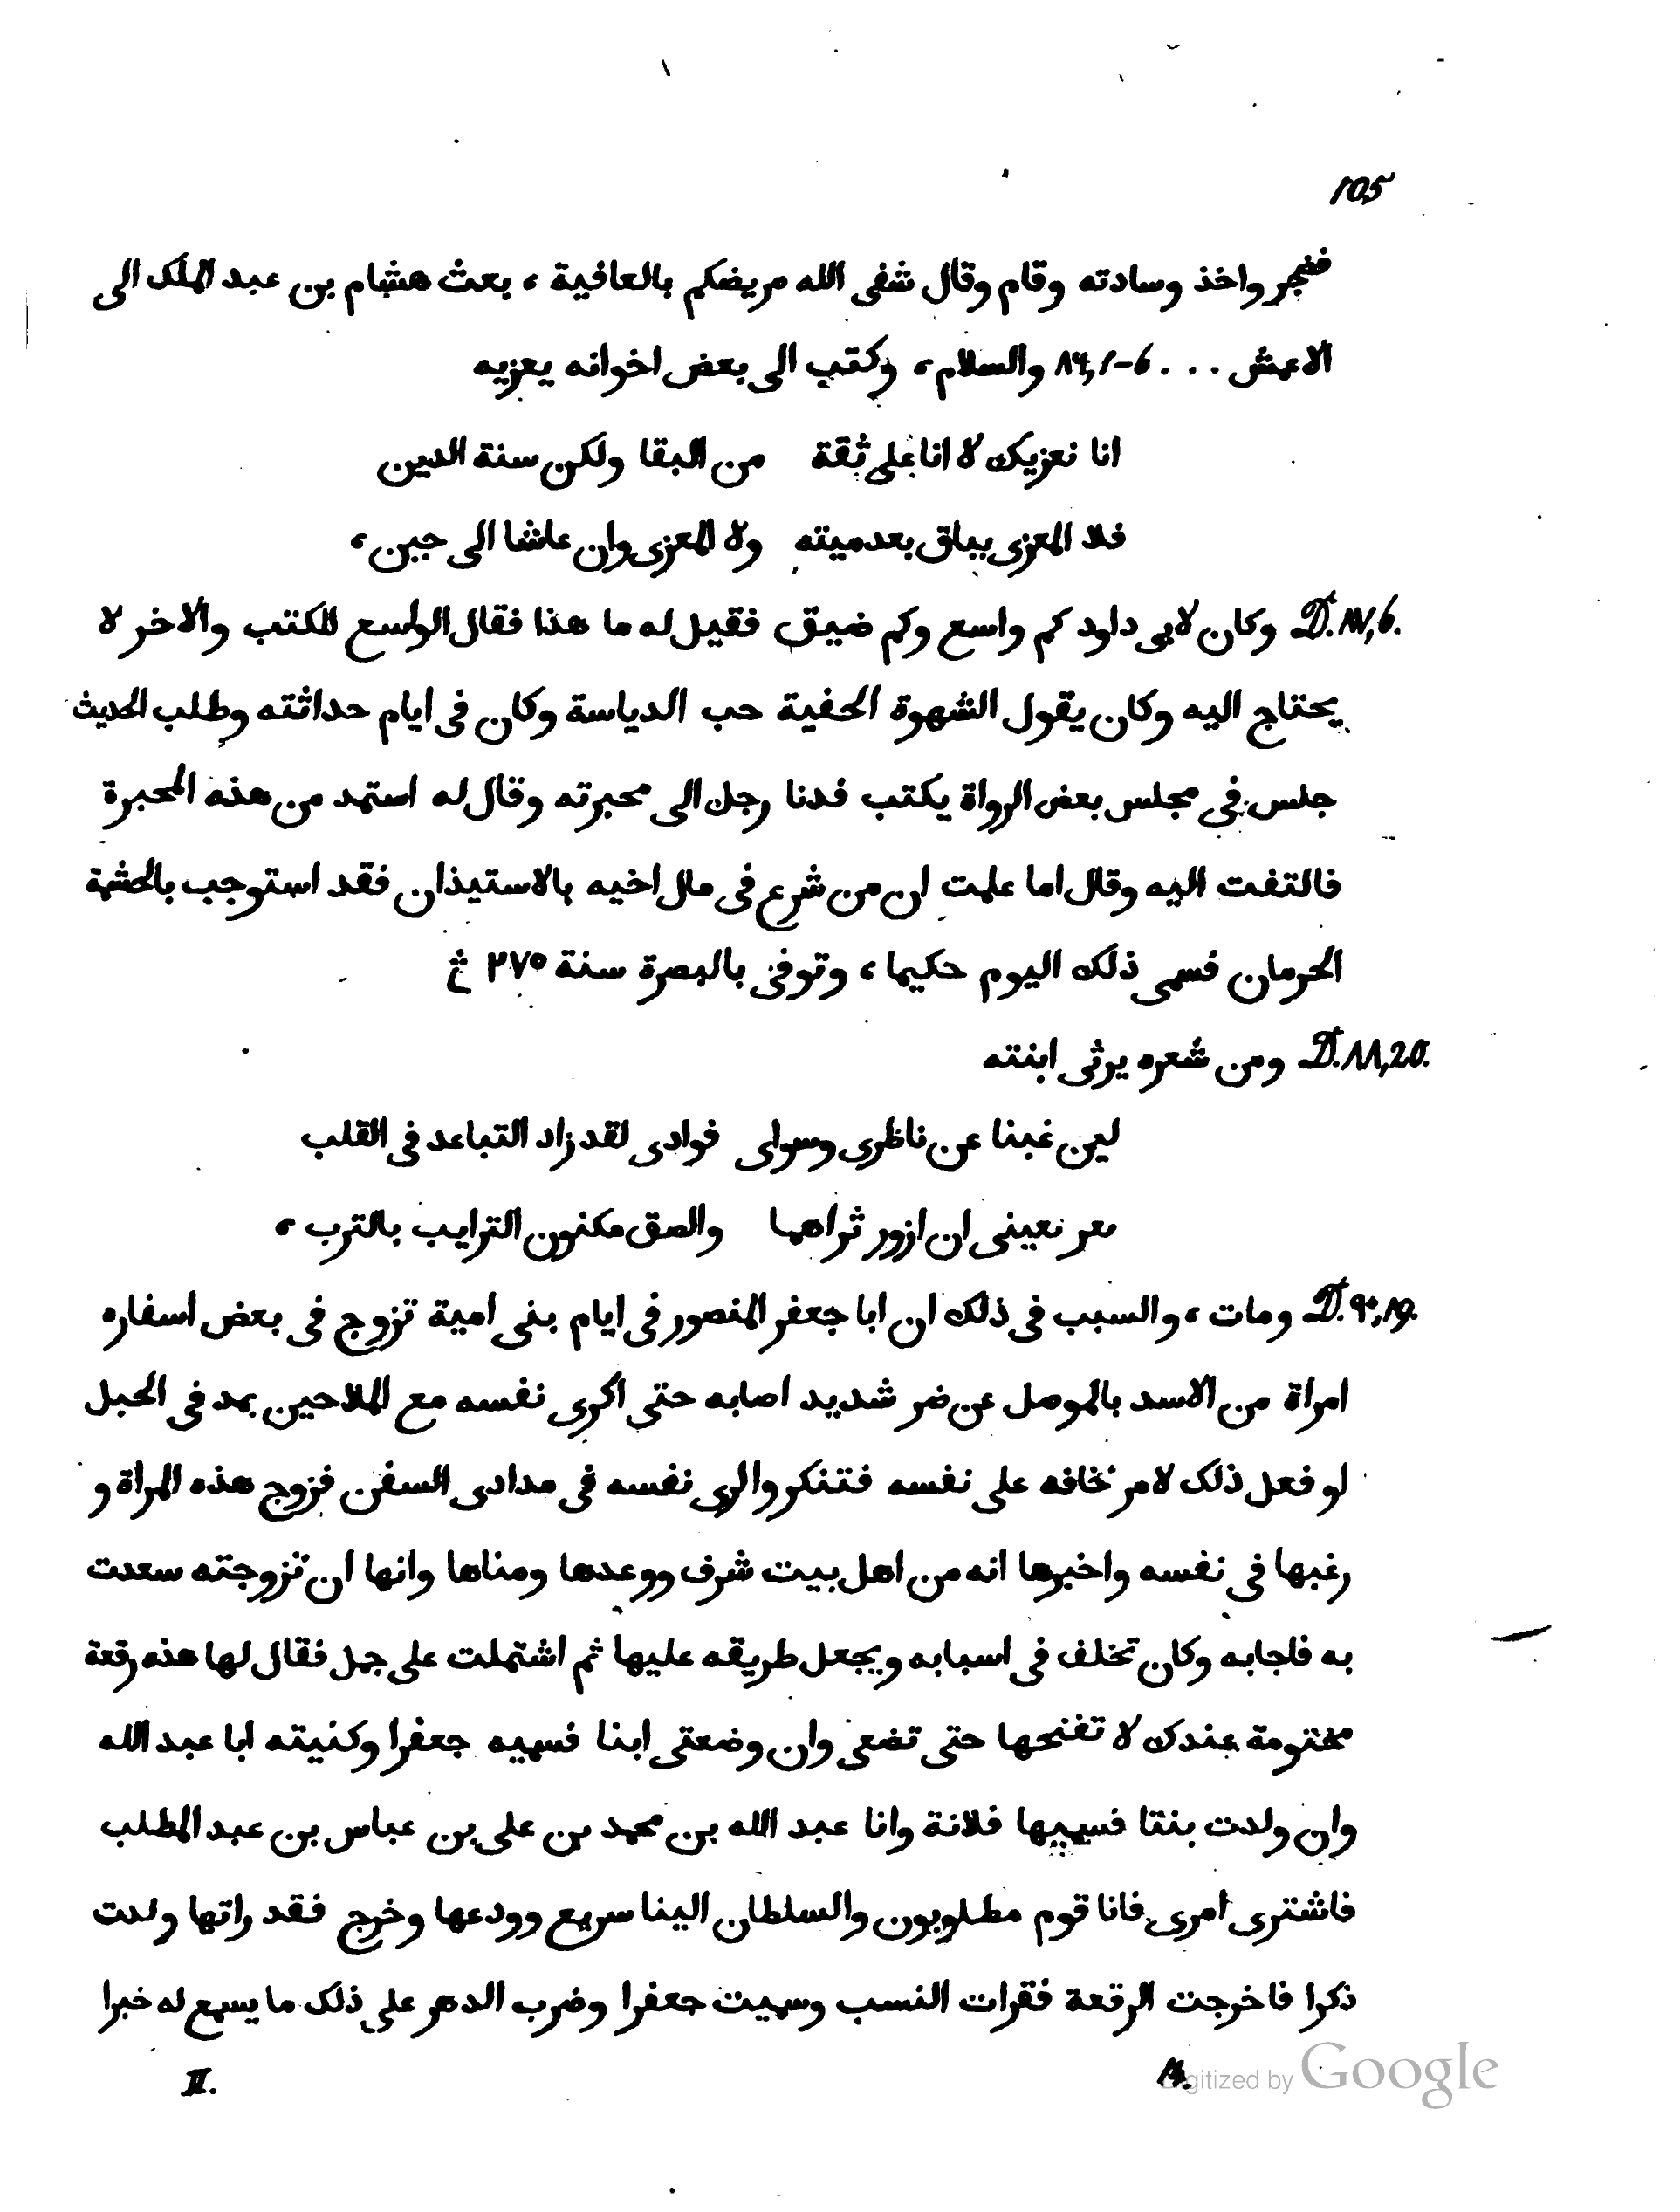 105
فضجر واخذ وسادته وقام وقال شفى الله مريضكم بالعافية ، بعث هشام بن عبد الملك الى
الاعمش . . . ٨٤,١-6 والسلام ، وكتب الى بعض اخوانه يعزيه
انا نعزيك لا انا على ثقة من البقا ولكن سنة الدين
فلا المعزى بباق بعد ميته ولا المعزى وان عاشا الى حين ،
D. ٨٧,6. وكان لابى داود كم واسع وكم ضيق فقيل له ما هذا فقال الواسع للكتب والاخر لا
يحتاج اليه وكان يقول الشهوة الخفية حب الدياسة وكان فى ايام حداثته وطلب الحديث
جلس فى مجلس بعض الرواة يكتب فدنا رجل الى محبرته وقال له استمد من هذه المحبرة
فالتفت اليه وقال اما علمت ان من شرع فى مال اخيه بالاستيذان فقد استوجب بالحشمة
الحرمان فسمى ذلك اليوم حكيما ، وتوفى بالبصرة سنة ٢٧٥
D. ٨٨,20. ومن شعره يرثى ابنته
لين غبنا عن ناظرى وسولى فوادى لقد زاد التباعد فى القلب
بعينى ان ازور ثراهما والصق مكنون الترايب بالترب ،
D. ٩٠,19. ومات ، والسبب فى ذلك ان ابا جعفر المنصور فى ايام بنى امية تزوج فى بعض اسفاره
امراة من الاسد بالموصل عن ضر شديد اصابه حتى اكرى نفسه مع الملاحين يمد فى الحبل
لو فعل ذلك لامر خافه على نفسه فتنكر واكرى نفسه فى مدادى السفن فزوج هذه المراة و
رغبها فى نفسه واخبرها انه من اهل بيت شرف ووعدها ومناها وانها ان تزوجته سعدت
به فاجابه وكان تخلف فى اسبابه ويجعل طريقه عليها ثم اشتملت على حمل فقال لها هذه رقعة
مختومة عندك لا تفتحها حتى تضعى وان وضعتى ابنا فسميه جعفرا وكنيته ابا عبد الله
وان ولدت بنتا فسميها فلانة وانا عبد الله بن محمد بن على بن عباس بن عبد المطلب
فاشترى امرى فانا قوم مطلوبون والسلطان الينا سريع وودعها وخرج فقد راتها ولدت
ذكرا فاخرجت الرقعة فقرات النسب وسميت جعفرا وضرب الدهر على ذلك ما يسمع له خبرا
II. ١٤.
Digitized by Google